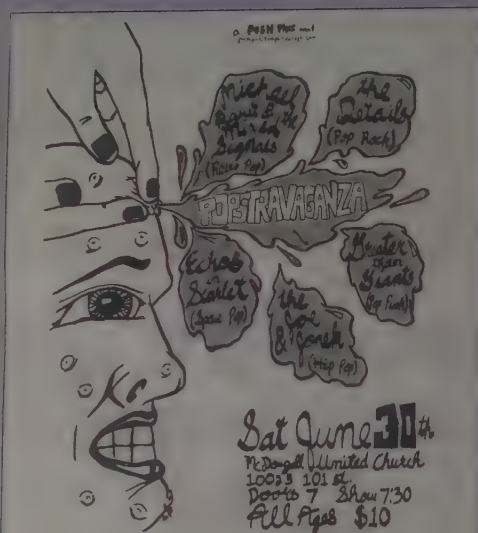 a PUSH PINS event
Michael
& the
Mixed
Signals
(Roots Pop)
the
Details
(Pop Rock)
POPSTRAVAGANZA
Echos
in
Scarlet
(Space Pop)
the Joe
& Jonek
(Hip Pop)
Greater
than
Giants
(Pop Punk)
Sat June 30th
McDougall United Church
10023 101 st.
Doors 7 Show 7:30
All Ages $10